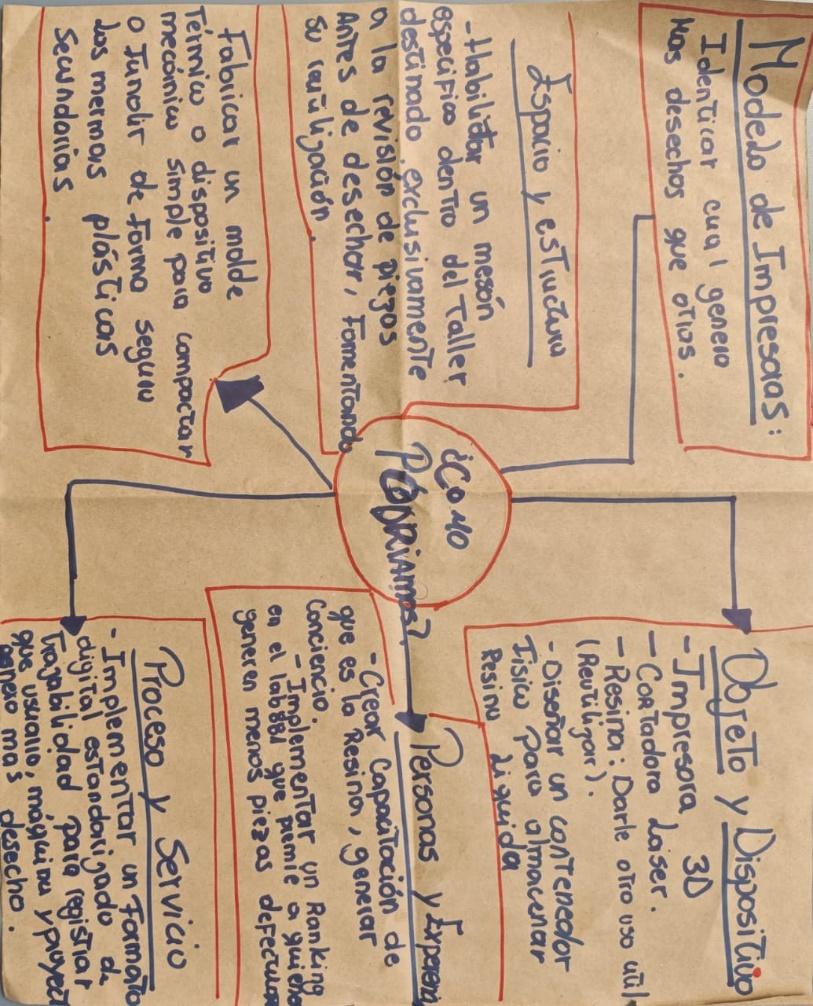 Modelo de Impresoras:
Identicar cual genera
mas desechos que otras.
Espacio y estructura
- Habilitar un mesón
especifico dentro del Taller
destinado exclusivamente
a la revisión de piezas
Antes de desechar, fomentando
su reutilización.
Fabricar un molde
Térmico o dispositivo
mecánico simple para compactar
o fundir de forma segura
Las mermas plásticas
secundarias.
¿COMO
PODRIAMOS?
Objeto y Dispositivo
- Impresora 3D
- Cortadora Laiser.
- Resina: Darle otro uso util
(Reutilizar).
- Diseñar un contenedor
fisico para almacenar
Resina liquida
Personas y Experienci
- Crear Capacitación de
que es la Resina, generar
Conciencia.
- Implementar un Ranking
en el lab881 que premie a quienes
generen menos piezas defectuosa
Proceso y Servicio
- Implementar un Formato
digital estandarizado de
Trazabilidad para registrar
que usuario, máquina y proyect
genero mas desecho.